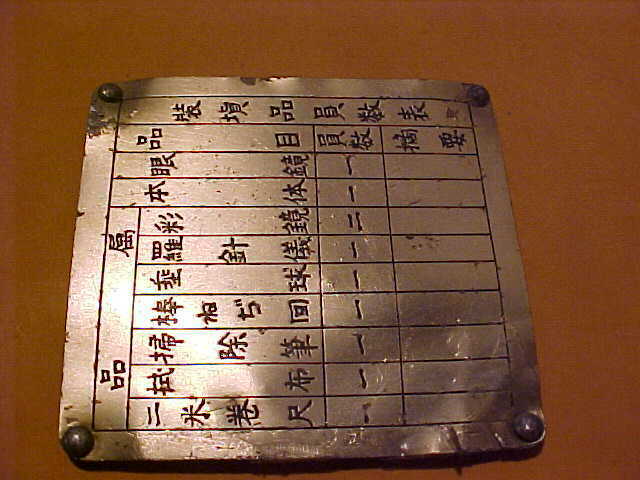 裝塡品員数表
品目 員数 摘要
眼鏡 一
本体 一
属品
彩鏡 二
羅針儀 一
垂球 一
棒ねぢ回 一
掃除筆 一
拭布 一
二米卷尺 一